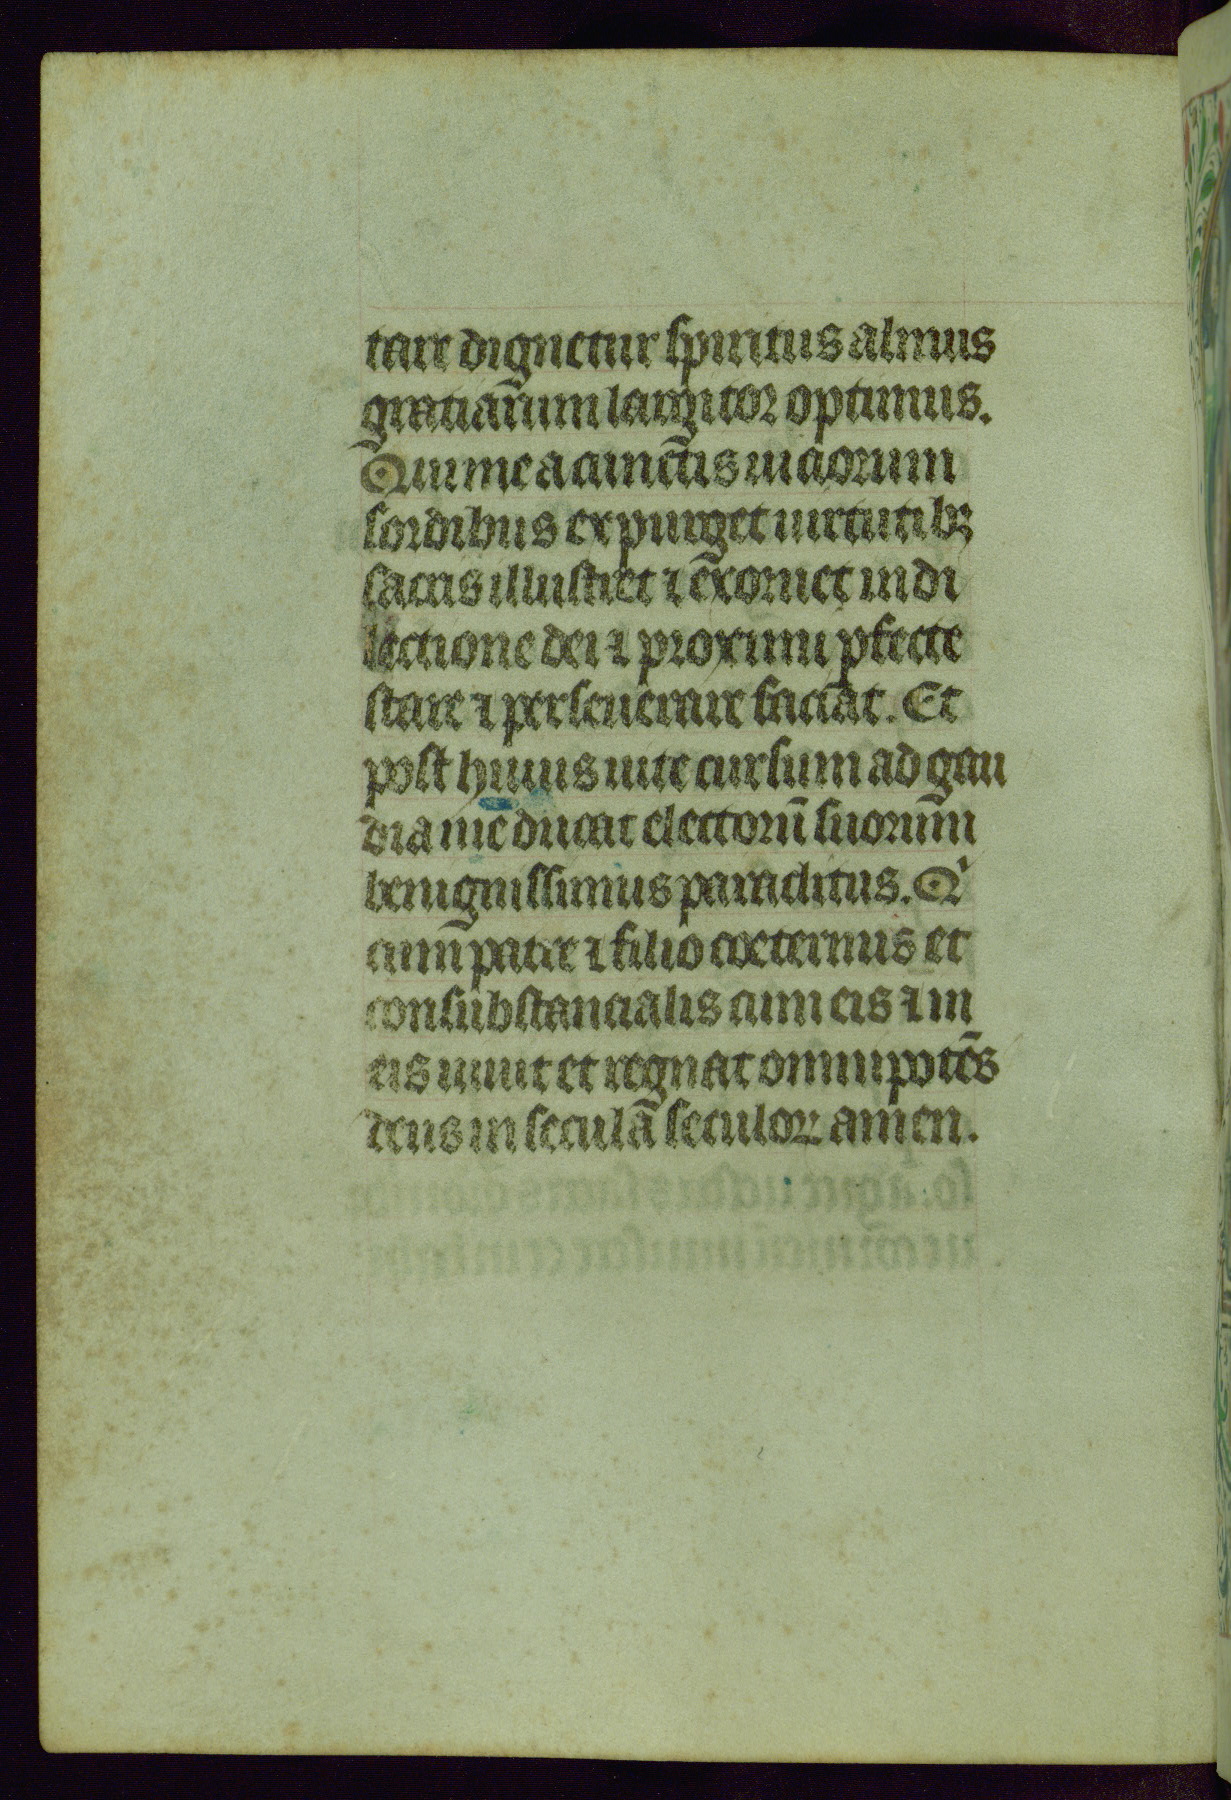 tare dignetur spiritus almus
gratiarum largitor optimus.
Qui me a cunctis uiciorum
sordibus expurget uirtutibꝫ
sacris illustret ⁊ exornet in di
lectione dei ⁊ proximi ꝑfecte
stare ⁊ perseuerare faciat. Et
post huius uite cursum ad gau
dia me ducat electorū suorum
benignissimus paraclitus. Qͥ
cum patre ⁊ filio coeternus et
consubstancialis cum eis ⁊ in
eis uiuit et regnat omnipotēs
deus in secula seculoꝝ amen.